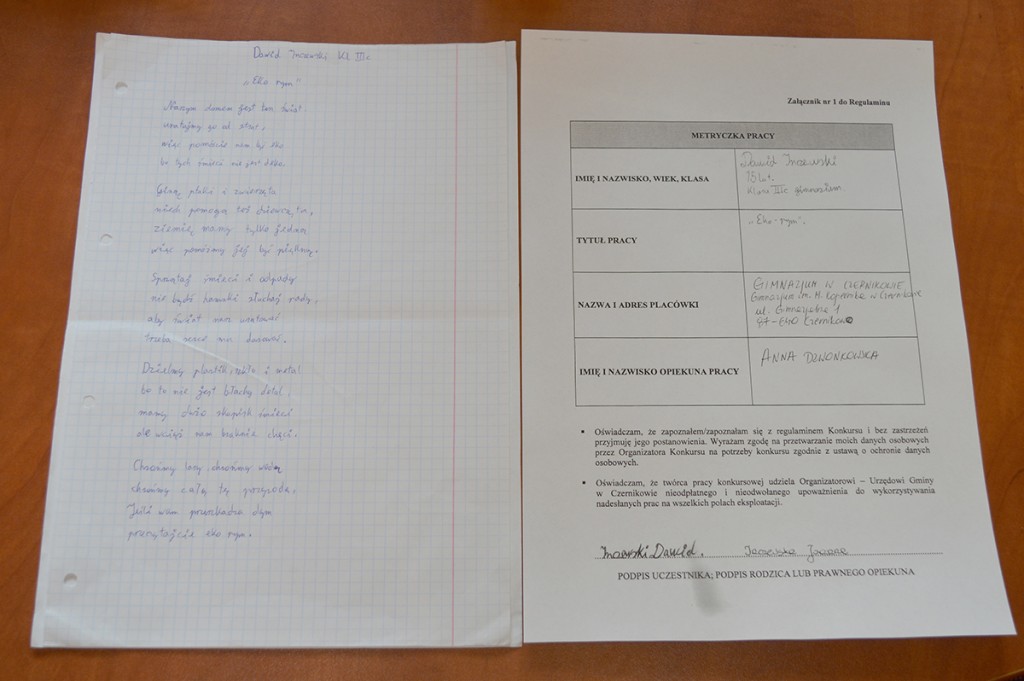 Dawid Inzewski Kl IIIc
„Eko rym"
Naszym domem jest ten świat
uratujmy go od strat,
więc pomóżcie nam by eko
bo tych śmieci nie jest deko.
Giną ptaki i zwierzęta
niech pomogą też dziewczęta,
ziemię mamy tylko jedną
więc pomóżmy jej być piękną.
Sprzątaj śmieci i odpady
nie bądź słuchaj rady,
aby świat nasz uratować
trzeba serce mu darować.
Dzielmy plastik, szkło i metal
bo to nie jest błachy detal,
mamy dużo skupisk śmieci
ale wciąż nam braknie chęci.
Chrońmy lasy chrońmy wodę
chrońmy całą tę przyrodę.
Jeśli wam przeszkadza dym
przeczytajcie eko rym.
Załącznik nr 1 do Regulaminu
METRYCZKA PRACY
IMIĘ I NAZWISKO, WIEK, KLASA
Dawid Inzewski
15 lat.
Klasa IIIc gimnazjum.
TYTUŁ PRACY
„Eko-rym".
NAZWA I ADRES PLACÓWKI
GIMNAZJUM W CZERNIKOWIE
Gimnazjum im. M. Kopernika w Czernikowie
ul. Gimnazjalna 1
87-640 Czernikowo
IMIĘ I NAZWISKO OPIEKUNA PRACY
ANNA DZWONKOWSKA
▪ Oświadczam, że zapoznałem/zapoznałam się z regulaminem Konkursu i bez zastrzeżeń
przyjmuję jego postanowienia. Wyrażam zgodę na przetwarzanie moich danych osobowych
przez Organizatora Konkursu na potrzeby konkursu zgodnie z ustawą o ochronie danych
osobowych.
▪ Oświadczam, że twórca pracy konkursowej udziela Organizatorowi – Urzędowi Gminy
w Czernikowie nieodpłatnego i nieodwołanego upoważnienia do wykorzystywania
nadesłanych prac na wszelkich polach eksploatacji.
Inzewski Dawid.
PODPIS UCZESTNIKA; PODPIS RODZICA LUB PRAWNEGO OPIEKUNA